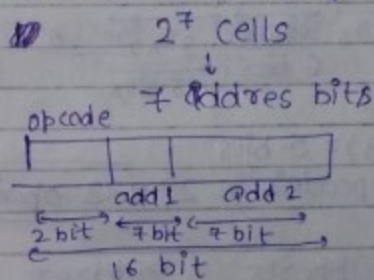 2⁷ cells
↓
7 addres bits
opcode
add 1 add 2
2 bit 7 bit 7 bit
16 bit